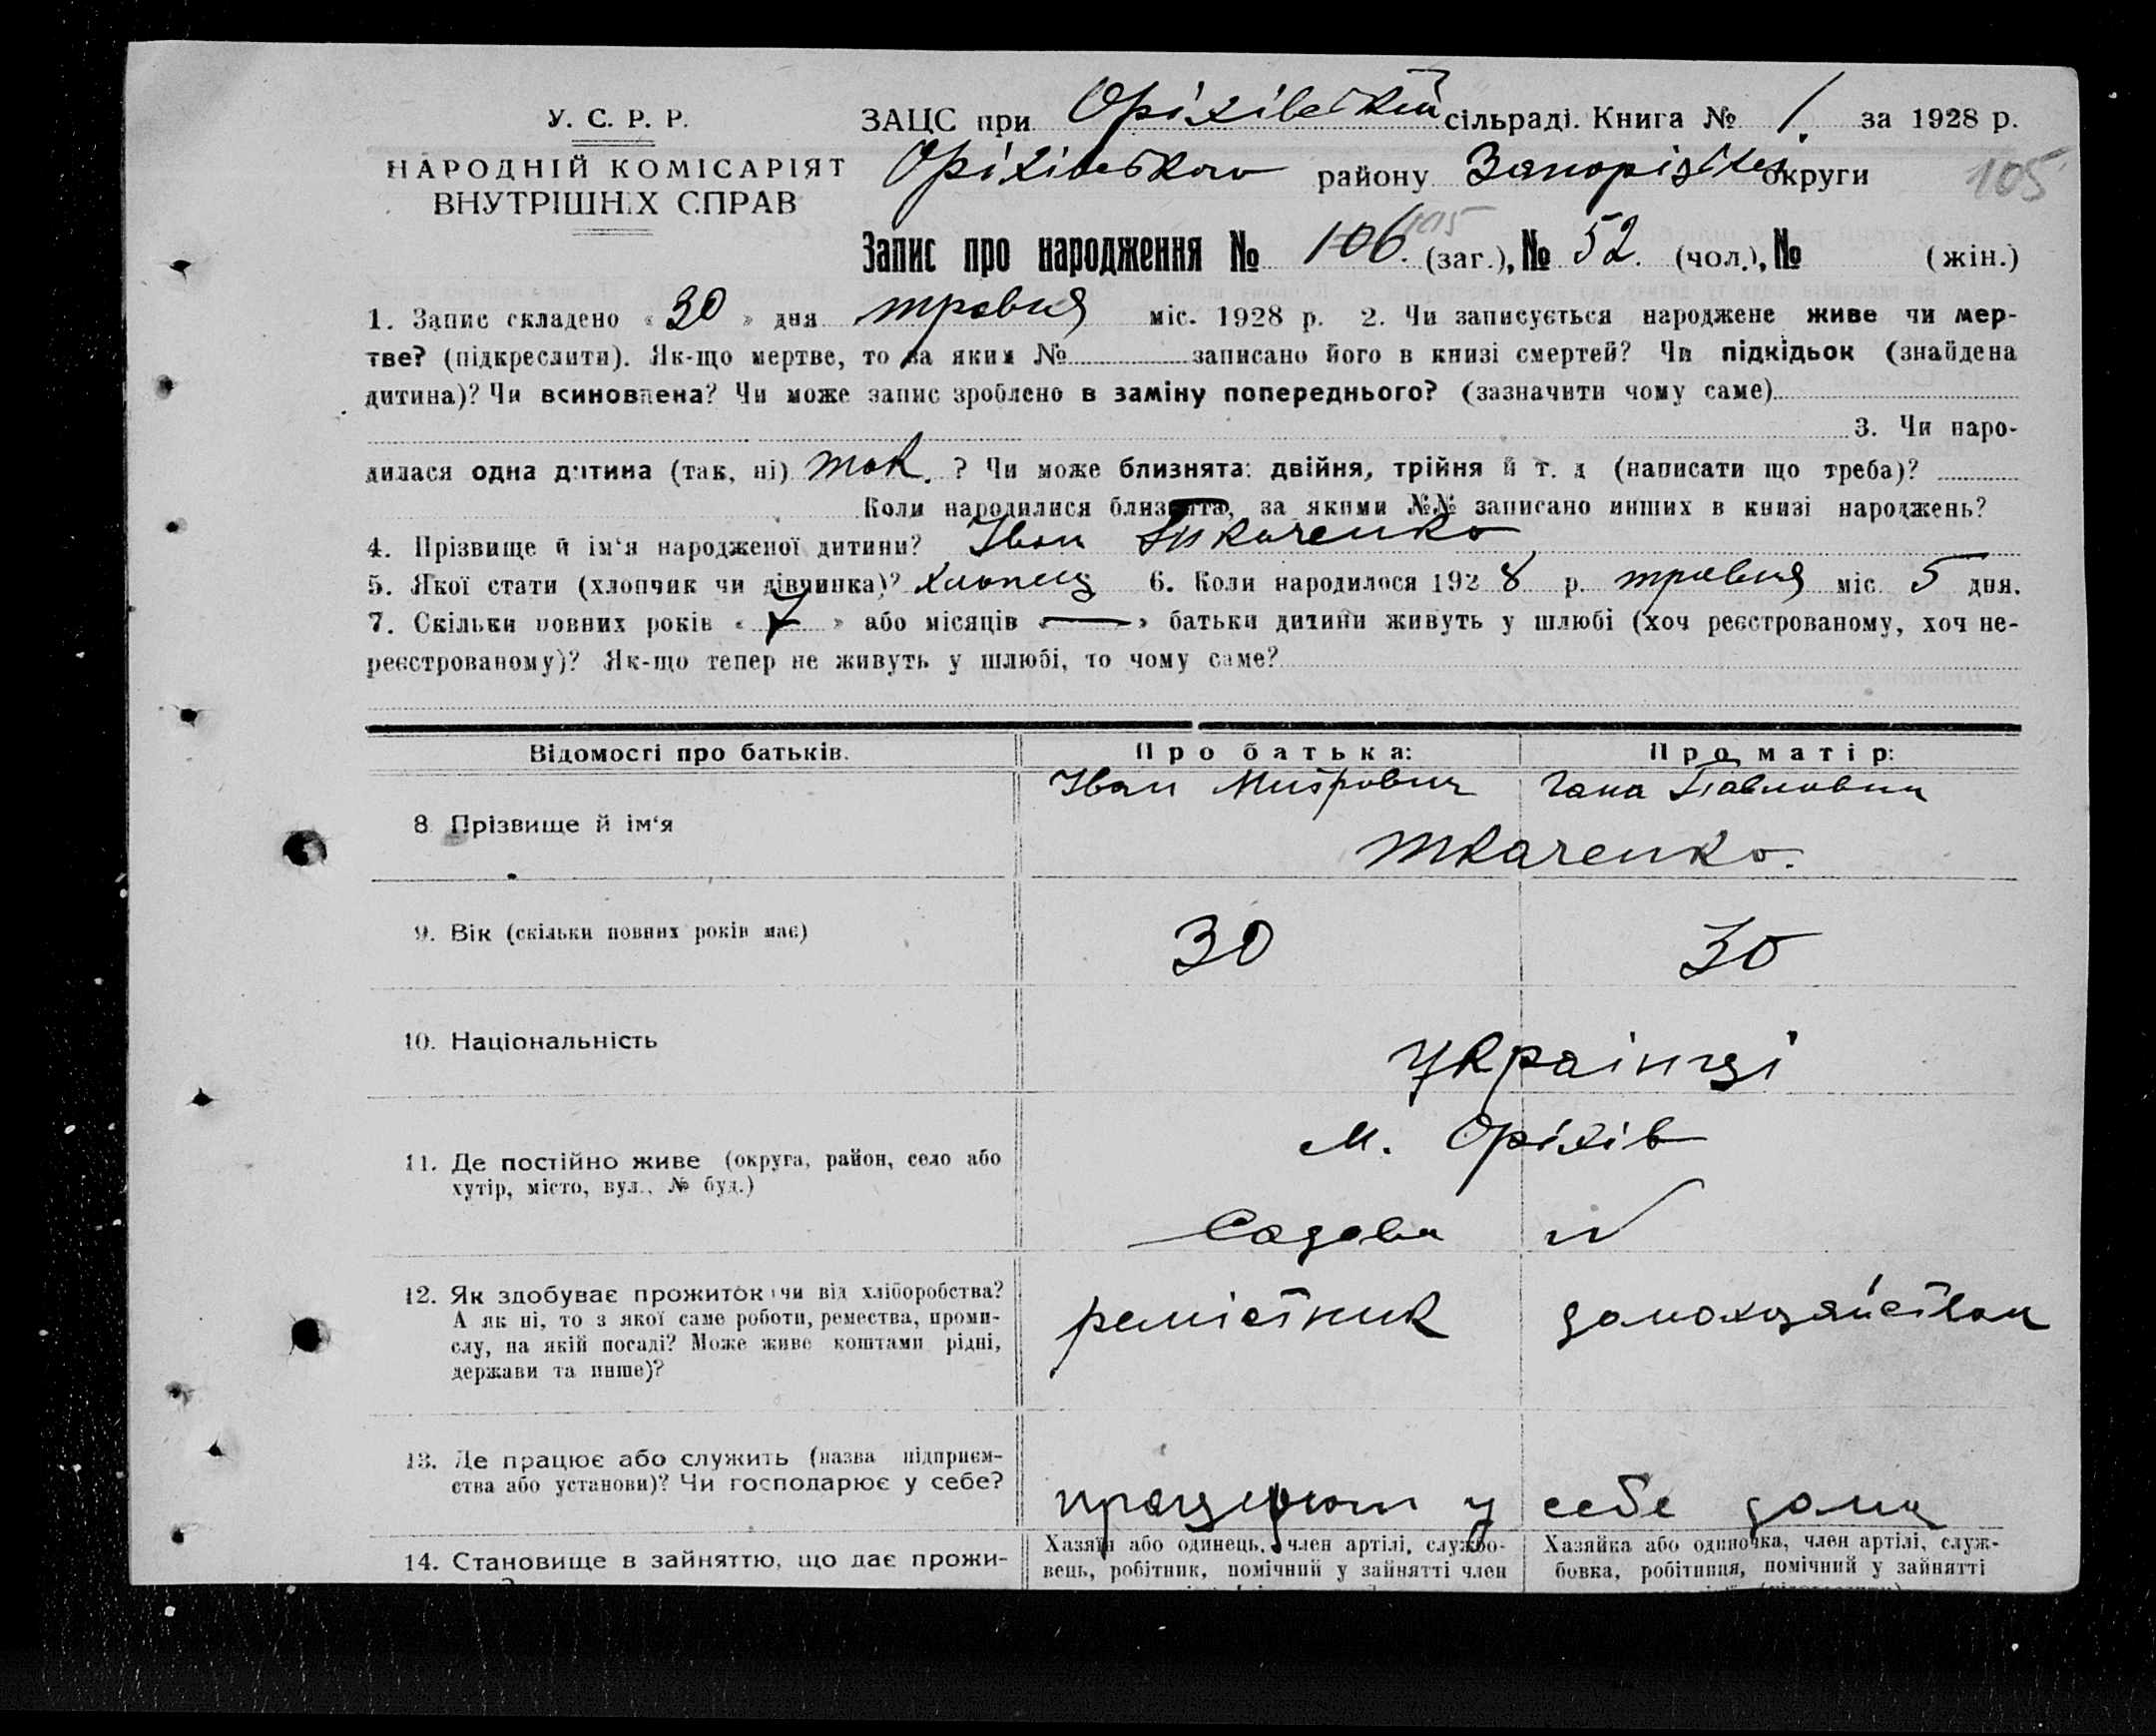 У. С. Р. Р.
НАРОДНІЙ КОМІСАРІЯТ
ВНУТРІШНІХ СПРАВ
ЗАЦС при Оріхівській сільраді. Книга № 1. за 1928 р.
Оріхівського району Запорізької округи 105
Запис про народження № 106. 105 (заг.), № 52. (чол.), № (жін.)
1. Запис складено « 30 » дня травня міс. 1928 р. 2. Чи записується народжене живе чи мер-
тве? (підкреслити). Як-що мертве, то за яким № записано його в книзі смертей? Чи підкідьок (знайдена
дитина)? Чи всиновлена? Чи може запис зроблено в заміну попереднього? (зазначити чому саме)
3. Чи наро-
дилася одна дитина (так, ні) так. ? Чи може близнята: двійня, трійня й т. д (написати що треба)?
Коли народилися близнята, за якими №№ записано инших в книзі народжень?
4. Прізвище й ім'я народженої дитини? Іван Ткаченко
5. Якої стати (хлопчик чи дівчинка)? Хлопець 6. Коли народилося 1928 р. травня міс. 5 дня.
7. Скільки повних років « 7 » або місяців « — » батьки дитини живуть у шлюбі (хоч реєстрованому, хоч не-
реєстрованому)? Як-що тепер не живуть у шлюбі, то чому саме?
Відомості про батьків.
Про батька:
Про матір:
8 Прізвище й ім'я
Іван Митрович
Гана Павловна
Ткаченко.
9. Вік (скільки повних років має)
30
30
10. Національність
Українці
11. Де постійно живе (округа, район, село або
хутір, місто, вул., № буд.)
м. Оріхів
Садова №
12. Як здобуває прожиток чи від хліборобства?
А як ні, то з якої саме роботи, ремества, проми-
слу, на якій посаді? Може живе коштами рідні,
держави та инше)?
ремістник
домохозяйством
13. Де працює або служить (назва підприєм-
ства або установи)? Чи господарює у себе?
працюють у себе дома
14. Становище в зайняттю, що дає прожи-
Хазяїн або одинець, член артілі, службо-
вець, робітник, помічний у зайнятті член
Хазяйка або одиночка, член артілі, служ-
бовка, робітниця, помічний у зайнятті